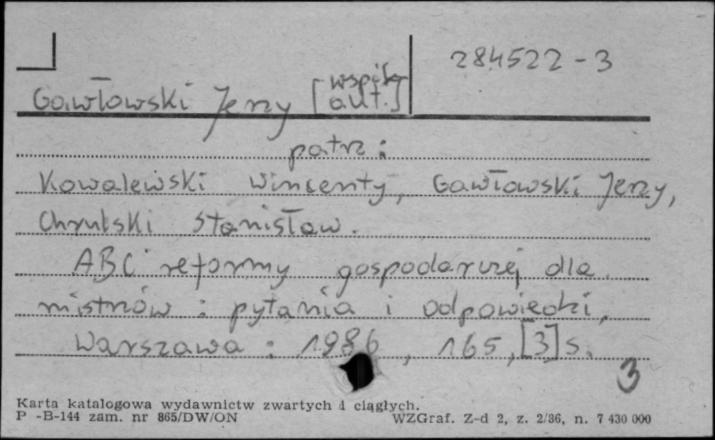 284522-3
Gawłowski Jerzy [współ
aut.]
patrz:
Kowalewski Wincenty, Gawłowski Jerzy,
Stanisław.
ABC reformy gospodarczej dla
mistrzów : pytania i odpowiedzi,
Warszawa : 1986, 165, [3] s.
3
Karta katalogowa wydawnictw zwartych i ciągłych.
P -B-144 zam. nr 865/DW/ON WZGraf. Z-d 2, z. 2/86, n. 7 430 000